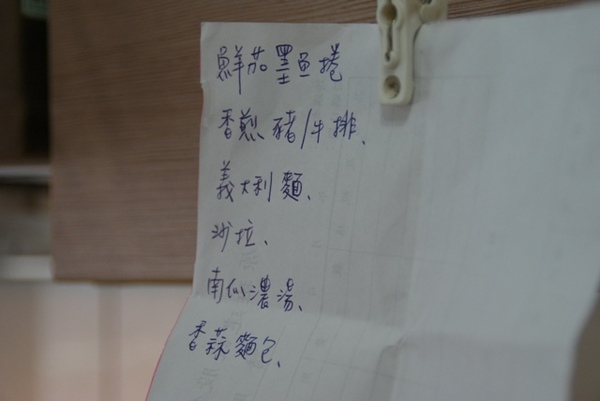 鮮茄墨魚捲
香煎豬/牛排、
義大利麵、
沙拉、
南瓜濃湯、
香蒜麵包、